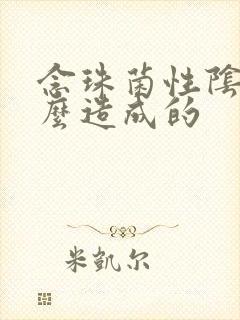 念珠菌性陰
麼造成的
米凱尔